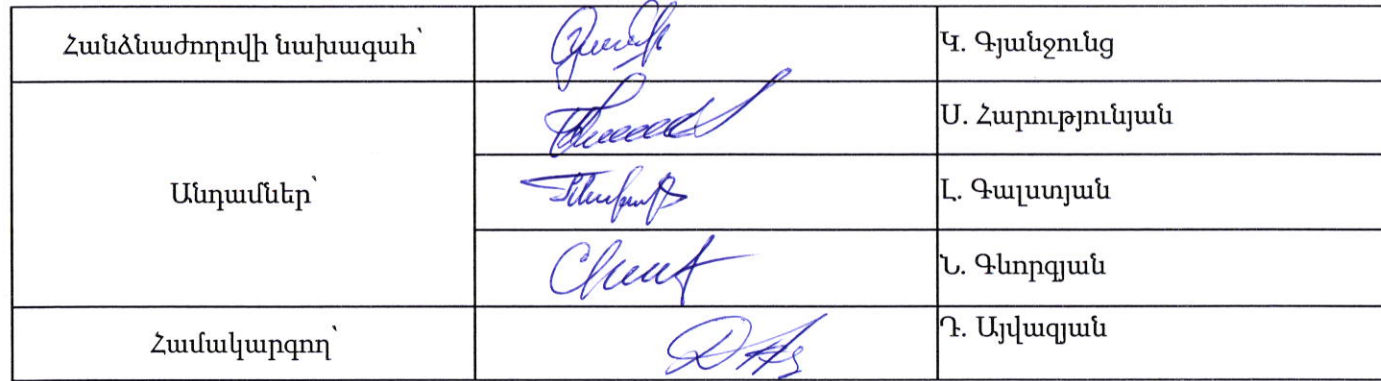 Հանձնաժողովի նախագահ՝
Կ. Գյանջունց
Ս. Հարությունյան
Անդամներ՝
Լ. Գալստյան
Ն. Գևորգյան
Համակարգող՝
Դ. Այվազյան